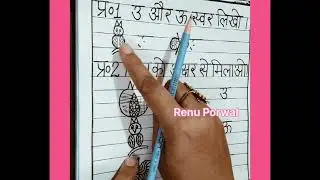 प्र०1 उ और ऊ स्वर लिखो।
प्र०2 को से मिलाओ।
Renu Porwal
उ
ऊ